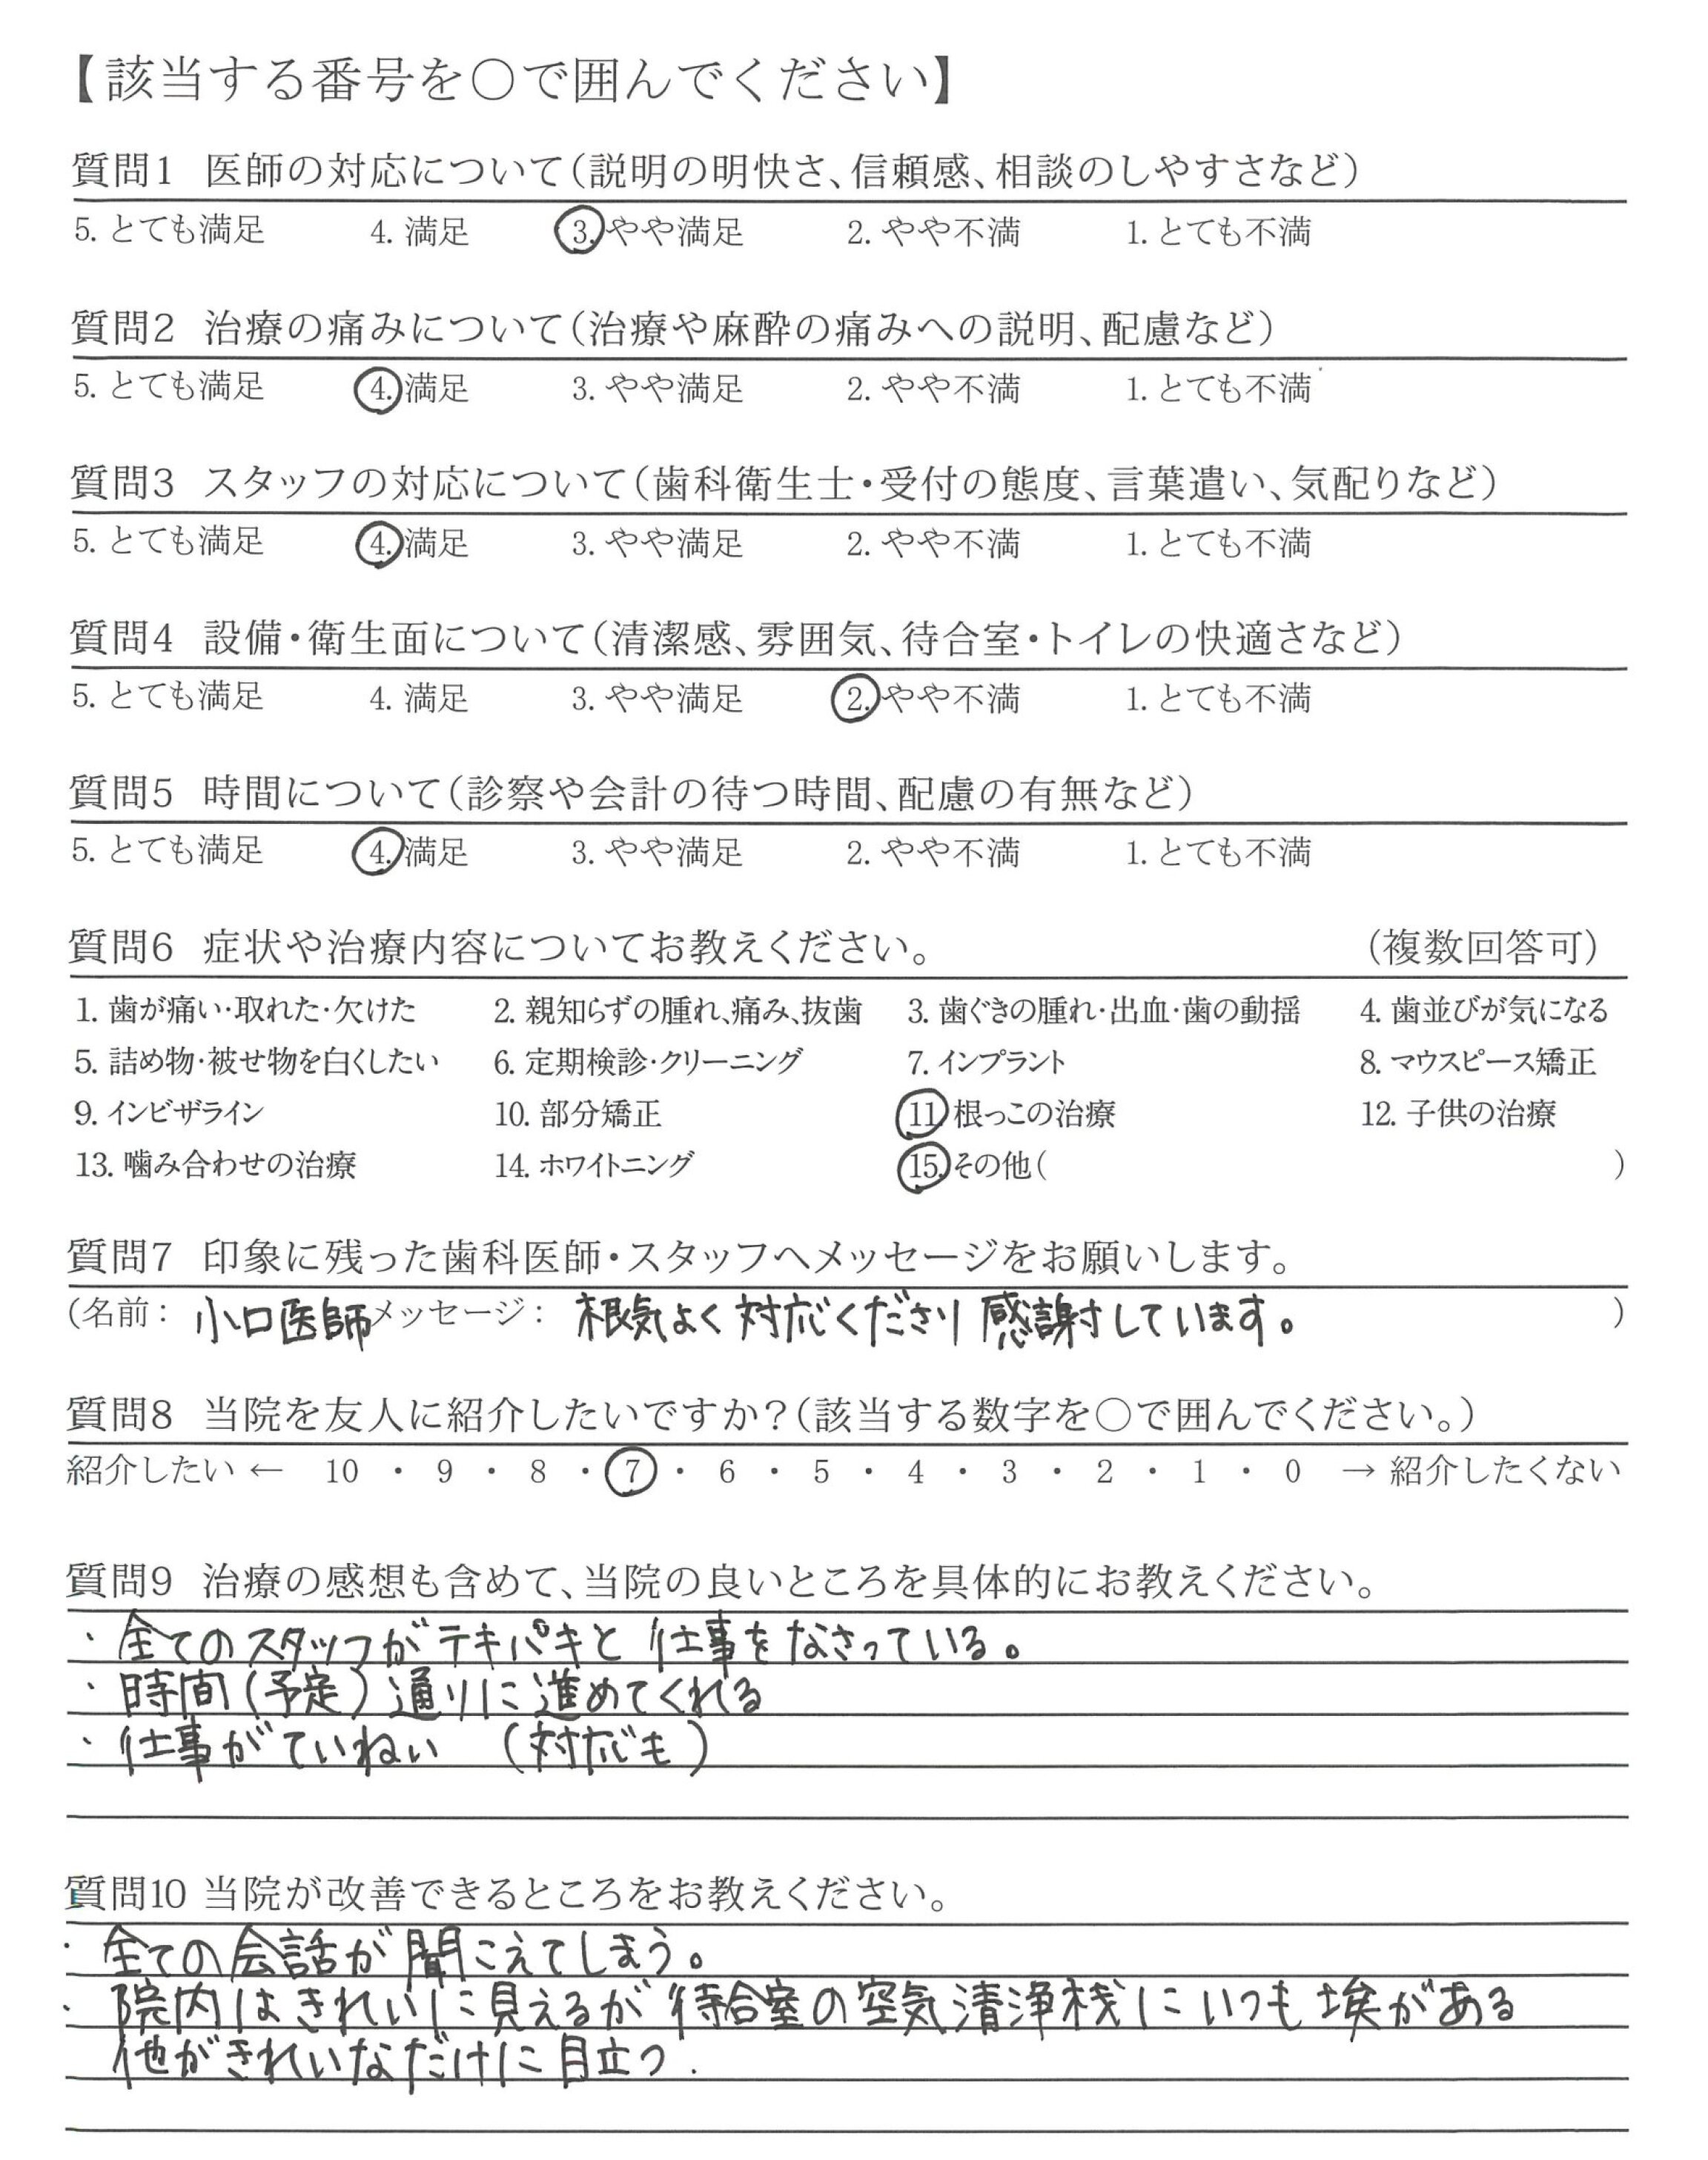 【該当する番号を○で囲んでください】
質問1 医師の対応について(説明の明快さ、信頼感、相談のしやすさなど)
5. とても満足 4. 満足 3. やや満足 2. やや不満 1. とても不満
質問2 治療の痛みについて(治療や麻酔の痛みへの説明、配慮など)
5. とても満足 4. 満足 3. やや満足 2. やや不満 1. とても不満
質問3 スタッフの対応について(歯科衛生士・受付の態度、言葉遣い、気配りなど)
5. とても満足 4. 満足 3. やや満足 2. やや不満 1. とても不満
質問4 設備・衛生面について(清潔感、雰囲気、待合室・トイレの快適さなど)
5. とても満足 4. 満足 3. やや満足 2. やや不満 1. とても不満
質問5 時間について(診察や会計の待つ時間、配慮の有無など)
5. とても満足 4. 満足 3. やや満足 2. やや不満 1. とても不満
質問6 症状や治療内容についてお教えください。 (複数回答可)
1. 歯が痛い・取れた・欠けた 2. 親知らずの腫れ、痛み、抜歯 3. 歯ぐきの腫れ・出血・歯の動揺 4. 歯並びが気になる
5. 詰め物・被せ物を白くしたい 6. 定期検診・クリーニング 7. インプラント 8. マウスピース矯正
9. インビザライン 10. 部分矯正 11. 根っこの治療 12. 子供の治療
13. 噛み合わせの治療 14. ホワイトニング 15. その他( )
質問7 印象に残った歯科医師・スタッフへメッセージをお願いします。
(名前: 小口医師 メッセージ: 根気よく対応くださり感謝しています。 )
質問8 当院を友人に紹介したいですか?(該当する数字を○で囲んでください。)
紹介したい ← 10 ・ 9 ・ 8 ・ 7 ・ 6 ・ 5 ・ 4 ・ 3 ・ 2 ・ 1 ・ 0 → 紹介したくない
質問9 治療の感想も含めて、当院の良いところを具体的にお教えください。
・全てのスタッフがテキパキと仕事をなさっている。
・時間(予定)通りに進めてくれる
・仕事がていねい (対応も)
質問10 当院が改善できるところをお教えください。
・全ての会話が聞こえてしまう。
・院内はきれいに見えるが待合室の空気清浄機にいつも埃がある
他がきれいなだけに目立つ.